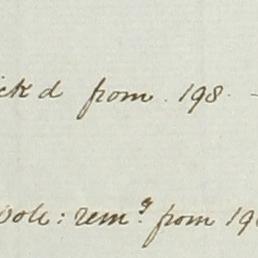 ickd from. 198. -
pole: rem.g from 19